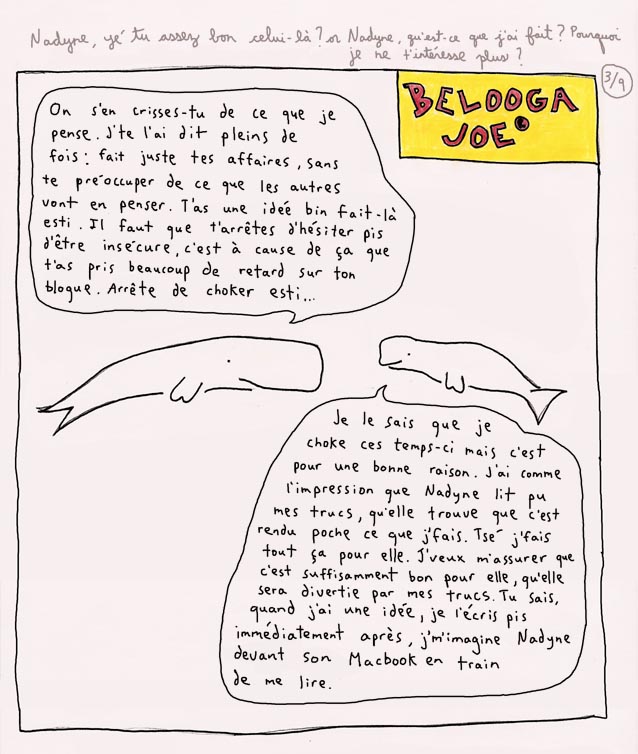 Nadyne, yé tu assez bon celui-là? or Nadyne, qu'est-ce que j'ai fait? Pourquoi
je ne t'intéresse plus?
3/9
BELOOGA
JOE
On s'en crisses-tu de ce que je
pense. J'te l'ai dit pleins de
fois: fait juste tes affaires, sans
te préoccuper de ce que les autres
vont en penser. T'as une idée bin fait-là
esti. Il faut que t'arrêtes d'hésiter pis
d'être insécure, c'est à cause de ça que
t'as pris beaucoup de retard sur ton
blogue. Arrête de choker esti...
Je le sais que je
choke ces temps-ci mais c'est
pour une bonne raison. J'ai comme
l'impression que Nadyne lit pu
mes trucs, qu'elle trouve que c'est
rendu poche ce que j'fais. Tsé j'fais
tout ça pour elle. J'veux m'assurer que
c'est suffisamment bon pour elle, qu'elle
sera divertie par mes trucs. Tu sais,
quand j'ai une idée, je l'écris pis
immédiatement après, j'm'imagine Nadyne
devant son Macbook en train
de me lire.